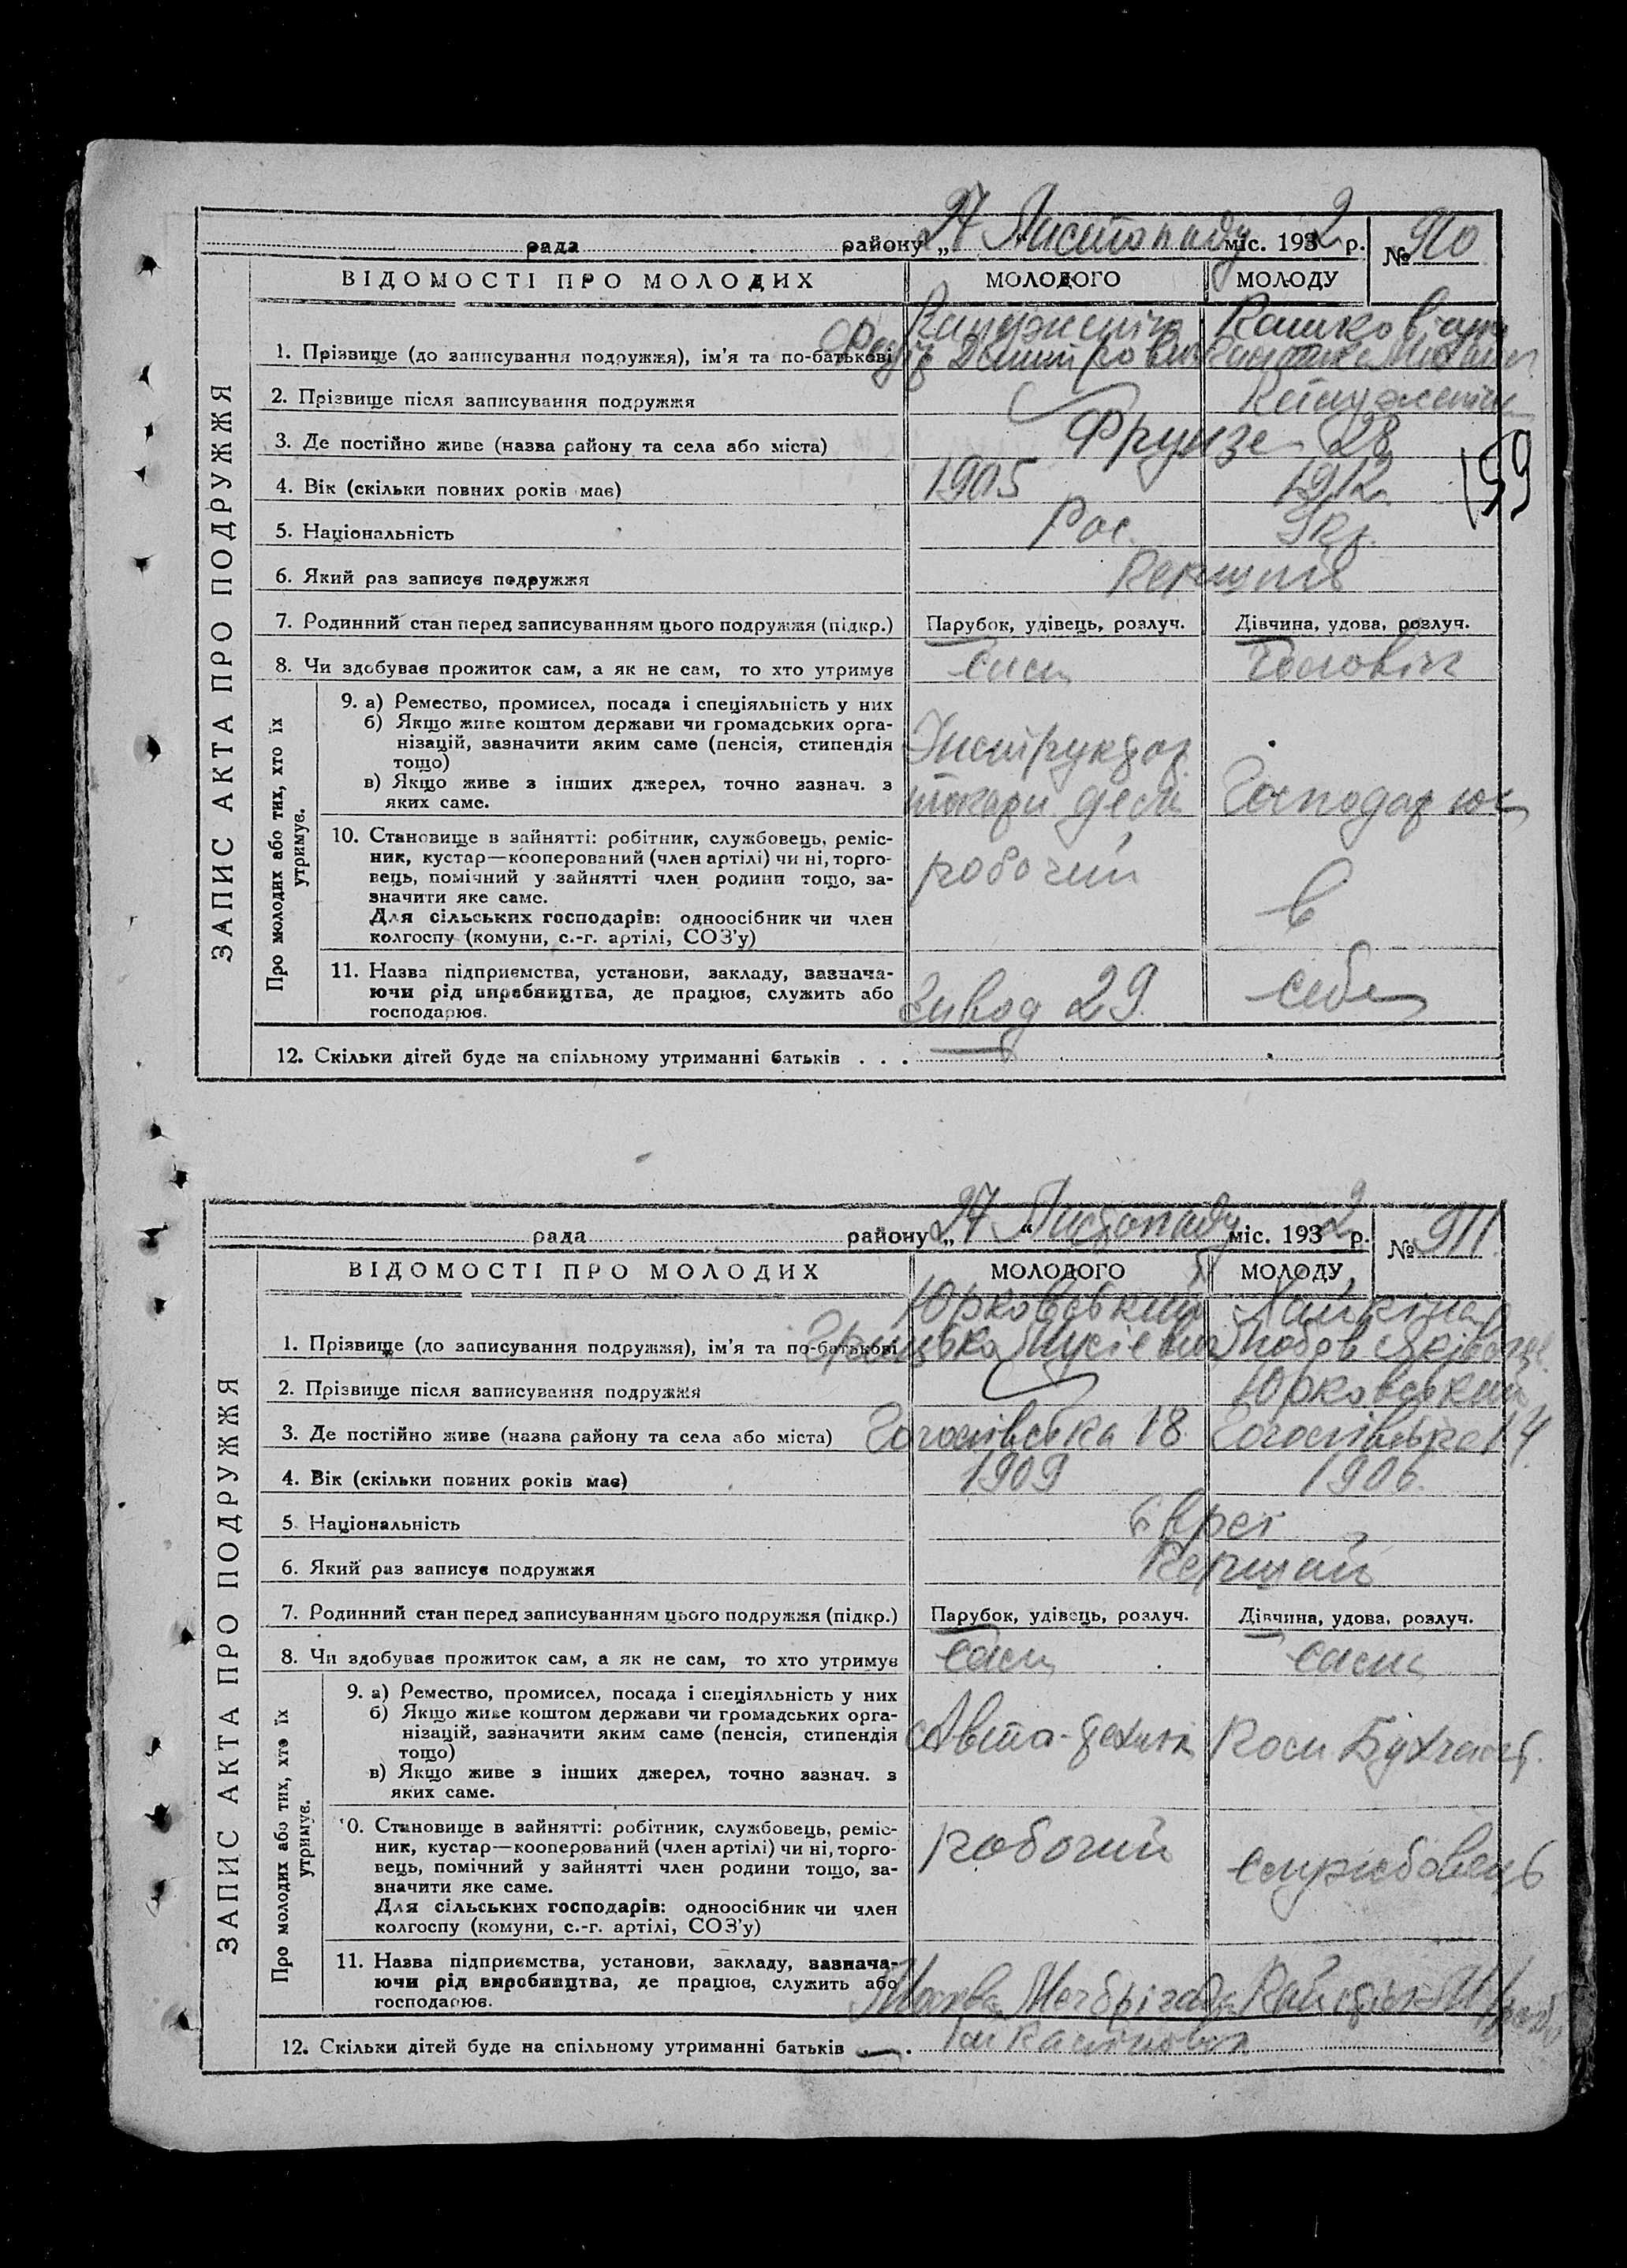 рада району „27“ Листопаду міс. 1932 р. № 910
ВІДОМОСТІ ПРО МОЛОДИХ МОЛОДОГО МОЛОДУ
ЗАПИС АКТА ПРО ПОДРУЖЖЯ
1. Прізвище (до записування подружжя), ім’я та по-батькові
2. Прізвище після записування подружжя
3. Де постійно живе (назва району та села або міста) Фрунзе 28
159
4. Вік (скільки повних років має) 1905 1912
5. Національність Рос. Укр.
6. Який раз записує подружжя
7. Родинний стан перед записуванням цього подружжя (підкр.) Парубок, удівець, розлуч. Дівчина, удова, розлуч.
8. Чи здобуває прожиток сам, а як не сам, то хто утримує сам Чоловік
Про молодих або тих, хто їх утримує.
9. а) Ремество, промисел, посада і спеціяльність у них
б) Якщо живе коштом держави чи громадських орга-
нізацій, зазначити яким саме (пенсія, стипендія
тощо)
в) Якщо живе з інших джерел, точно зазнач. з
яких саме.
Інструктор
токари Господарює
10. Становище в зайнятті: робітник, службовець, реміс-
ник, кустар—кооперований (член артілі) чи ні, торго-
вець, помічний у зайнятті член родини тощо, за-
значити яке саме.
Для сільських господарів: одноосібник чи член
колгоспу (комуни, с.-г. артілі, СОЗ’у)
робочий в
11. Назва підприємства, установи, закладу, зазнача-
ючи рід виробництва, де працює, служить або
господарює.
Завод 29. себе
12. Скільки дітей буде на спільному утриманні батьків . . . —
рада району „27“ Листопаду міс. 1932 р. № 911
ВІДОМОСТІ ПРО МОЛОДИХ МОЛОДОГО МОЛОДУ
ЗАПИС АКТА ПРО ПОДРУЖЖЯ
Юрковський Хайкіна
1. Прізвище (до записування подружжя), ім’я та по-батькові
2. Прізвище після записування подружжя Юрковський
3. Де постійно живе (назва району та села або міста) Гоголівська 18 Гоголівська 14
4. Вік (скільки повних років має) 1909 1906.
5. Національність Євреї
6. Який раз записує подружжя Перший
7. Родинний стан перед записуванням цього подружжя (підкр.) Парубок, удівець, розлуч. Дівчина, удова, розлуч.
8. Чи здобуває прожиток сам, а як не сам, то хто утримує сам сама
Про молодих або тих, хто їх утримує.
9. а) Ремество, промисел, посада і спеціяльність у них
б) Якщо живе коштом держави чи громадських орга-
нізацій, зазначити яким саме (пенсія, стипендія
тощо)
в) Якщо живе з інших джерел, точно зазнач. з
яких саме.
Авто-технік
10. Становище в зайнятті: робітник, службовець, реміс-
ник, кустар—кооперований (член артілі) чи ні, торго-
вець, помічний у зайнятті член родини тощо, за-
значити яке саме.
Для сільських господарів: одноосібник чи член
колгоспу (комуни, с.-г. артілі, СОЗ’у)
робочий службовець
11. Назва підприємства, установи, закладу, зазнача-
ючи рід виробництва, де працює, служить або
господарює.
Москва
12. Скільки дітей буде на спільному утриманні батьків — .